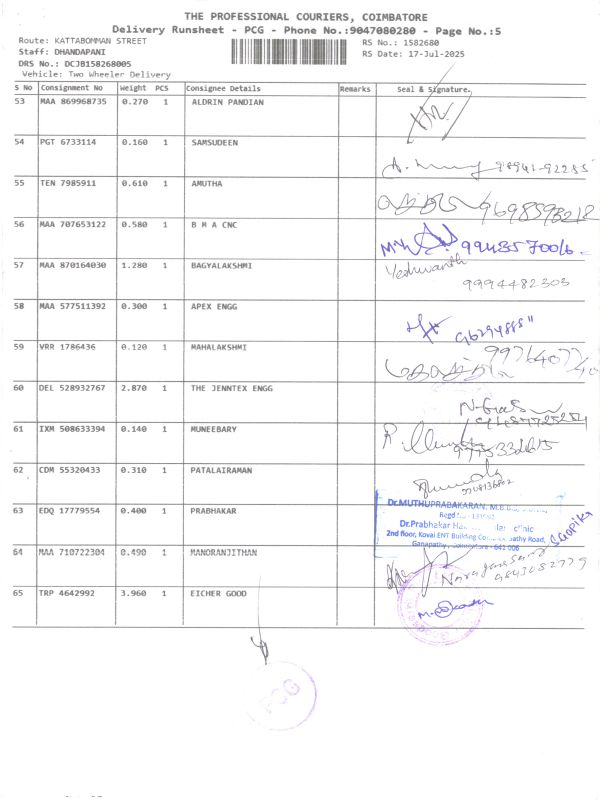 THE PROFESSIONAL COURIERS, COIMBATORE
Delivery Runsheet - PCG - Phone No.:9047080280 - Page No.:5
Route: KATTABOMMAN STREET RS No.: 1582680
Staff: DHANDAPANI RS Date: 17-Jul-2025
DRS No.: DCJB158268005
Vehicle: Two Wheeler Delivery
S No Consignment No Weight PCS Consignee Details Remarks Seal & Signature.
53 MAA 869968735 0.270 1 ALDRIN PANDIAN
54 PGT 6733114 0.160 1 SAMSUDEEN
98941-92285
55 TEN 7985911 0.610 1 AMUTHA
9698593218
56 MAA 707653122 0.580 1 B M A CNC
9943570016
57 MAA 870164030 1.280 1 BAGYALAKSHMI
Yeshwanth
9994482303
58 MAA 577511392 0.300 1 APEX ENGG
59 VRR 1786436 0.120 1 MAHALAKSHMI
60 DEL 528932767 2.870 1 THE JENNTEX ENGG
61 IXM 508633394 0.140 1 MUNEEBARY
62 CDM 55320433 0.310 1 PATALAIRAMAN
63 EDQ 17779554 0.400 1 PRABHAKAR
Dr.MUTHUPRABAKARAN, M.B.B.S.
Regd No
Dr.Prabhakar clinic
2nd floor, Kovai ENT Building Road,
Ganapathy, Coimbatore - 641 006
Gopika
64 MAA 710722304 0.490 1 MANORANJITHAN
9843052779
65 TRP 4642992 3.960 1 EICHER GOOD
PCG